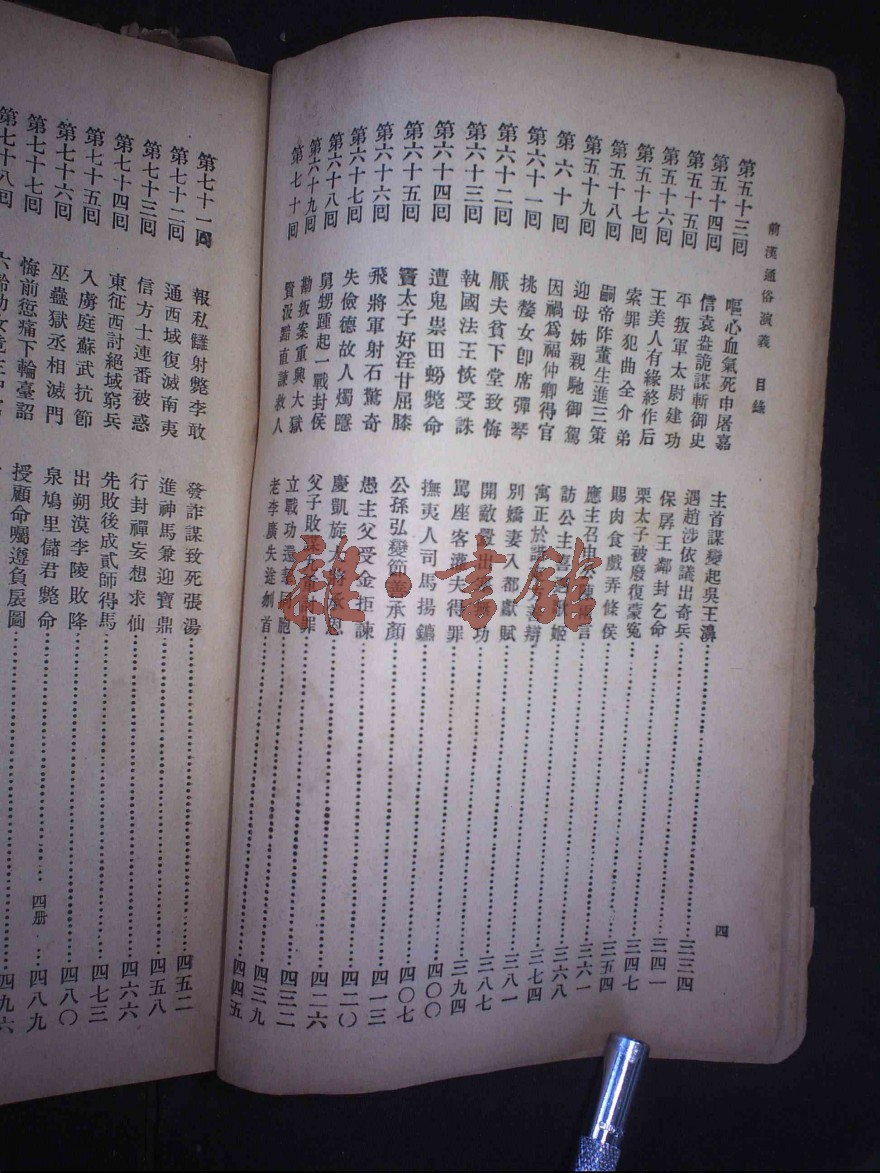 前漢通俗演義 目錄
第五十三回 嘔心血氣死申屠嘉 主首謀變起吳王濞 三三四
第五十四回 信袁盎詭謀斬御史 遇趙涉依議出奇兵 三四一
第五十五回 平叛軍太尉建功 保孱王酈封乞命 三四七
第五十六回 王美人有緣終作后 栗太子被廢復蒙冤 三五四
第五十七回 索罪犯曲全介弟 賜肉食戲弄條侯 三六一
第五十八回 嗣帝阼董生進三策 應主召申公陳兩言 三六八
第五十九回 迎母姊親馳御駕 訪公主喜遇歌姬 三七四
第六十回 因禍爲福仲卿得官 寓正於諧東方善辯 三八一
第六十一回 挑嫠女卽席彈琴 別嬌妻入都獻賦 三八七
第六十二回 厭夫貧下堂致悔 開敵釁出塞無功 三九四
第六十三回 執國法王恢受誅 罵座客灌夫得罪 四〇〇
第六十四回 遭鬼祟田蚡斃命 撫夷人司馬揚鑣 四〇七
第六十五回 竇太子好淫甘屈膝 公孫弘變節善承顏 四一三
第六十六回 飛將軍射石驚奇 愚主父受金拒諫 四二〇
第六十七回 失儉德故人燭隱 慶凱旋大將承恩 四二六
第六十八回 舅甥踵起一戰封侯 父子敗謀九重討罪 四三二
第六十九回 勘叛案重興大獄 立戰功還挈同胞 四三九
第七十回 賢汲黯直諫救人 老李廣失途刎首 四四五
四
第七十一回 報私讎射斃李敢 發詐謀致死張湯 四五二
第七十二回 通西域復滅南夷 進神馬兼迎寶鼎 四五八
第七十三回 信方士連番被惑 行封禪妄想求仙 四六六
第七十四回 東征西討絕域窮兵 先敗後成貳師得馬 四七三
第七十五回 入虜庭蘇武抗節 出朔漠李陵敗降 四八〇
第七十六回 巫蠱獄丞相滅門 泉鳩里儲君斃命 四册 四八九
第七十七回 悔前愆痛下輪臺詔 授顧命囑遵負扆圖 四九六
第七十八回
雜·書館